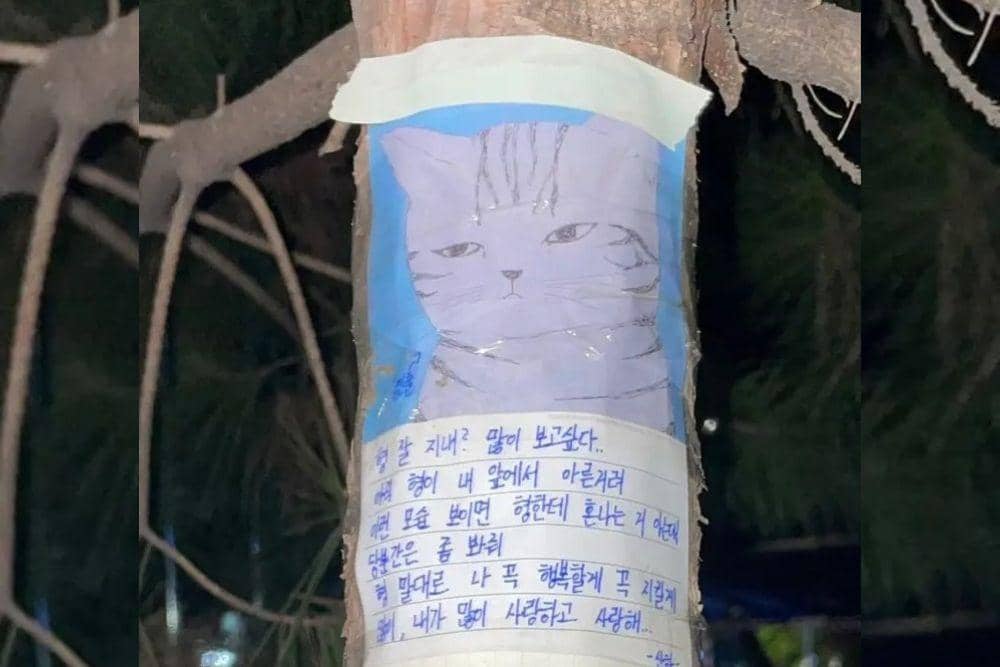 형 잘 지내? 많이 보고싶다..
형이 내 앞에서 아른거려
이런 모습 보이면 형한테 혼나는 거 아는데
당분간은 좀 봐줘
형 말대로 나 꼭 행복할게 꼭 지킬게
많이, 내가 많이 사랑하고 사랑해...